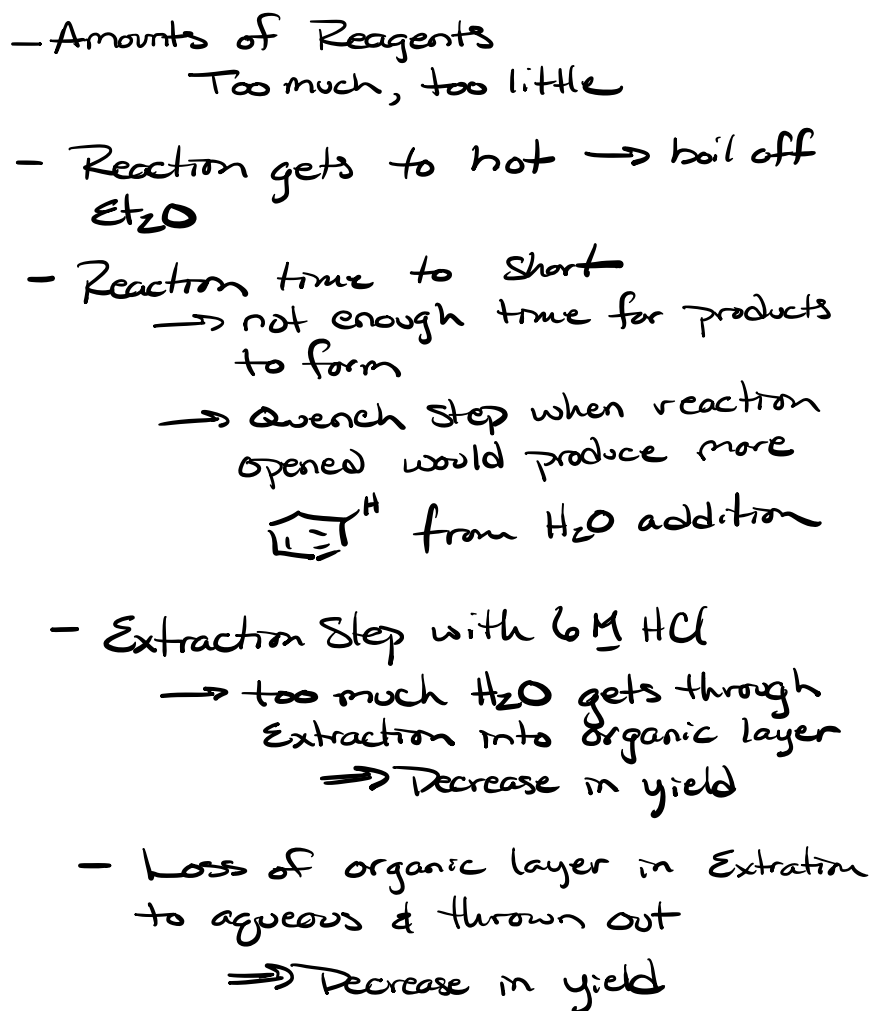 - Amounts of Reagents
Too much, too little
- Reaction gets to hot → boil off
Et₂O
- Reaction time to short
→ not enough time for products
to form
→ Quench step when reaction
opened would produce more
H from H₂O addition
- Extraction Step with 6 M HCl
→ too much H₂O gets through
Extraction into organic layer
⇒ Decrease in yield
- Loss of organic layer in Extration
to aqueous & thrown out
⇒ Decrease in yield